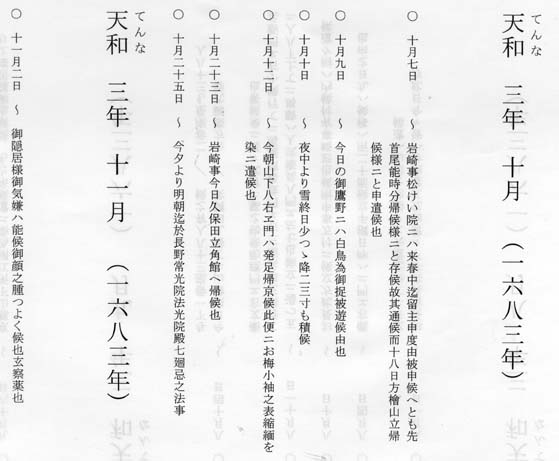 てんな
天和 三年 十月 (一六八三年)
○ 十月七日 ~ 岩崎事松けい院ニハ来春中迄留主申度由被申候へとも先
首尾能時分帰候様ニと存候故其通候而十八日方檜山立帰
候様ニと申遣候也
○ 十月九日 ~ 今日の御鷹野ニハ白鳥為御捉被遊候由也
○ 十月十日 ~ 夜中より雪終日少つゝ降二三寸も積候
○ 十月十二日 ~ 今朝山下八右ヱ門ハ発足帰京候此便ニお梅小袖之表縮緬を
染ニ遣候也
○ 十月二十三日 ~ 岩崎事今日久保田立角館へ帰候也
○ 十月二十五日 ~ 今夕より明朝迄於長野常光院法光院殿七廻忌之法事
てんな
天和 三年 十一月 (一六八三年)
○ 十一月二日 ~ 御隠居様御気嫌ハ能候御顔之腫つよく候也玄察薬也